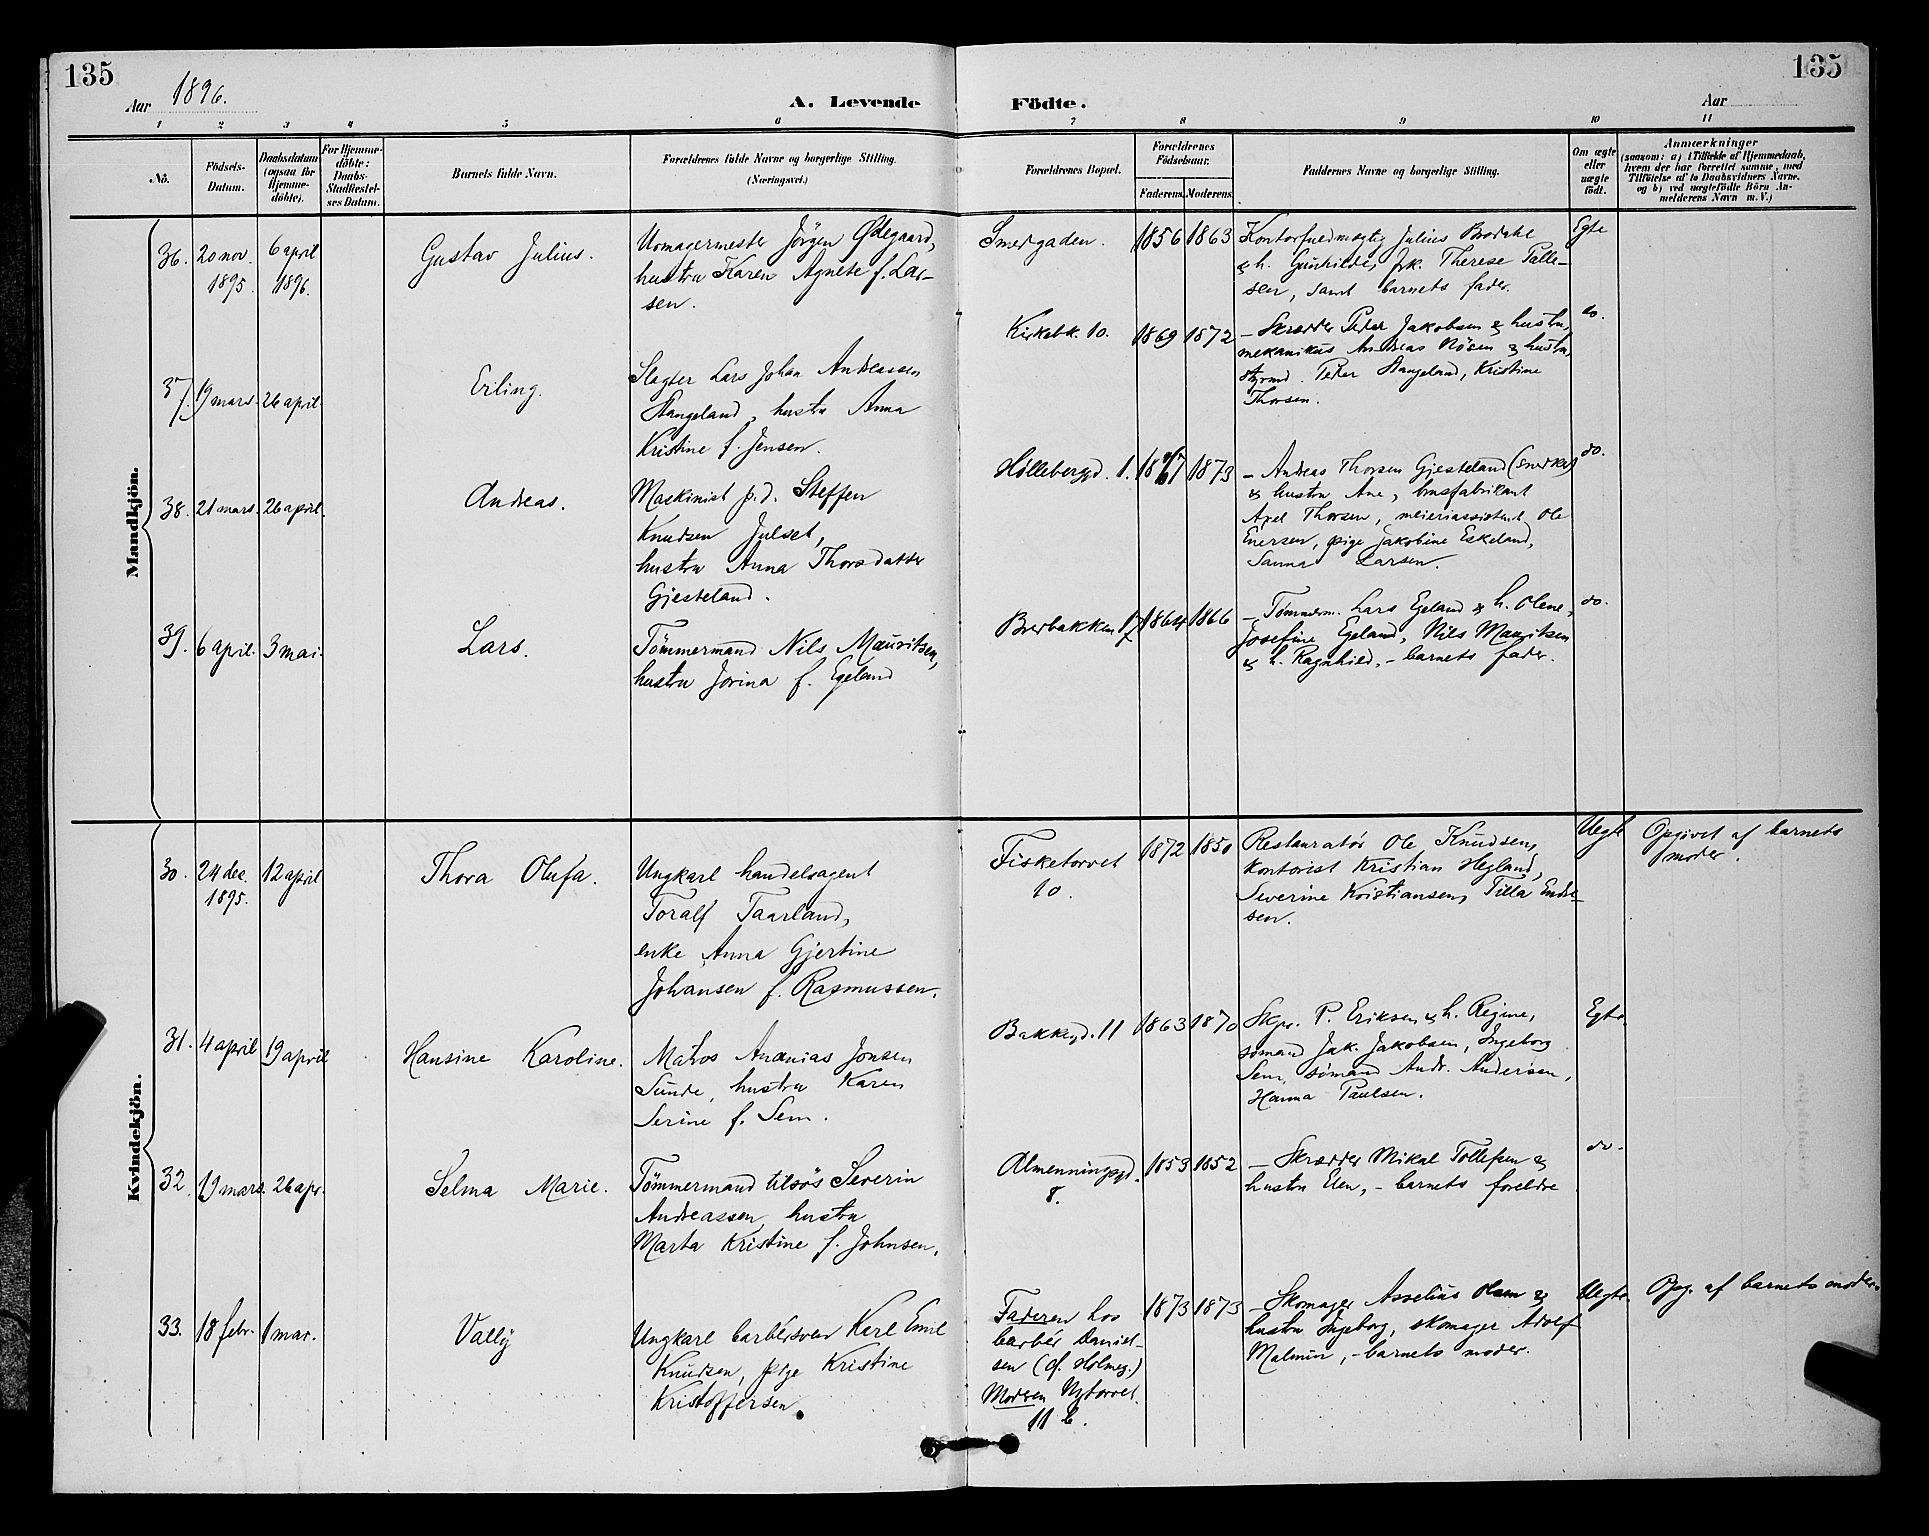 135
135
Aar 1896.
A. Levende
Födte.
Aar
1 2 3 4 5 6 7 8 9 10 11
No.
Födsels-
Datum.
Daabsdatum
(ogsaa for
Hjemme-
döbte).
For Hjemme-
döbte:
Daabs-
Stadfæstel-
ses Datum.
Barnets fulde Navn.
Forældrenes fulde Navne og borgerlige Stilling.
(Næringsvei.)
Forældrenes Bopæl.
Forældrenes
Födselsaar.
Faderens.
Moderens.
Faddernes Navne og borgerlige Stilling.
Om ægte
eller
uægte
födt.
Anmærkninger
(saasom: a) i Tilfælde af Hjemmedaab,
hvem der har forrettet samme, med
Tilföielse af to Daabsvidners Navne.
og b) ved uægtefödte Börn An-
melderens Navn m. V.)
Mandkjön.
36.
20 nov.
1895.
6 april
1896.
Gustav Julius.
Uomagermester Jörgen Ødegaard,
hustru Karen Agnete f. Lar-
sen.
Smedgaden.
1856
1863
Kontorfuldmægtig Julius
& h. Gunhilde, frk. Therese Palle-
sen, samt barnets fader.
Egte
37.
19 mars.
26 april.
Erling.
Slagter Lars Johan Andreassen
Stangeland, hustru Anna
Kristine f. Jensen.
Kirkebk. 10.
1869
1872
– Skrædder Peder Jakobsen & hustru,
mekanikus Andreas Nösen & hustru,
styrmd. Peter Stangeland, Kristine
Thorsen.
do.
38.
21 mars.
26 april.
Andreas.
Maskinist p.d. Steffen
Knudsen Julset,
hustru Anna Thorsdatter
Gjesteland.
Hollebergd. 1.
1867
1873
– Andreas Thorsen Gjesteland (snedker)
& hustru Ane, brusfabrikant
Axel Thorsen, meieriassistent Ole
Enersen, pige Jakobine Eskeland,
Sanna Larsen.
do.
39.
6 april.
3 mai.
Lars.
Tömmermand Nils Mauritsen,
hustru Jorina f. Egeland
Breibakken 17
1864
1866
– Tömmerm. Lars Egeland & h. Olene,
Josefine Egeland, Nils Mauritsen
& h. Ragnhild, – barnets fader.
do.
Kvindekjön.
30.
24 dec.
1895.
12 april
Thora Olufa.
Ungkarl handelsagent
Toralf Taarland,
enke Anna Gjertine
Johansen f. Rasmussen.
Fisketorvet
10.
1872
1850
Restauratör Ole Knudsen,
kontorist Kristian Hegland,
Severine Kristiansen, Tilla Endre-
sen.
Uegte
Opgivet af barnets
moder.
31.
4 april
19 april
Hansine Karoline.
Matros Ananias Jonsen
Sunde, hustru Karen
Serine f. Sem.
Bakkegd. 11
1863
1870
Skpr. P. Eriksen & h. Regine,
sömand Jak. Jakobsen, Ingeborg
Sem, sömand Andr. Andersen,
Hanna Paulsen.
Egte.
32.
19 mars.
26 apr.
Selma Marie.
Tömmermand tilsös Severin
Andreassen, hustru
Marta Kristine f. Johnsen.
Almenningsgd.
8.
1853
1852
– Skrædder Mikal Tollefsen &
hustru Elen, – barnets foreldre
do.
33.
18 febr.
1 mar.
Vally
Ungkarl barbérsvend Karl Emil
Knudsen, pige Kristine
Kristoffersen.
Faderen hos
barbér Daniel-
sen (d. Holmeg.)
Moderen Nytorvet
11 b.
1873
1873
– Skomager Asselius Olsen &
hustru Ingeborg, skomager Adolf
Malmin, – barnets moder.
Uegte.
Opg. af barnets moder.